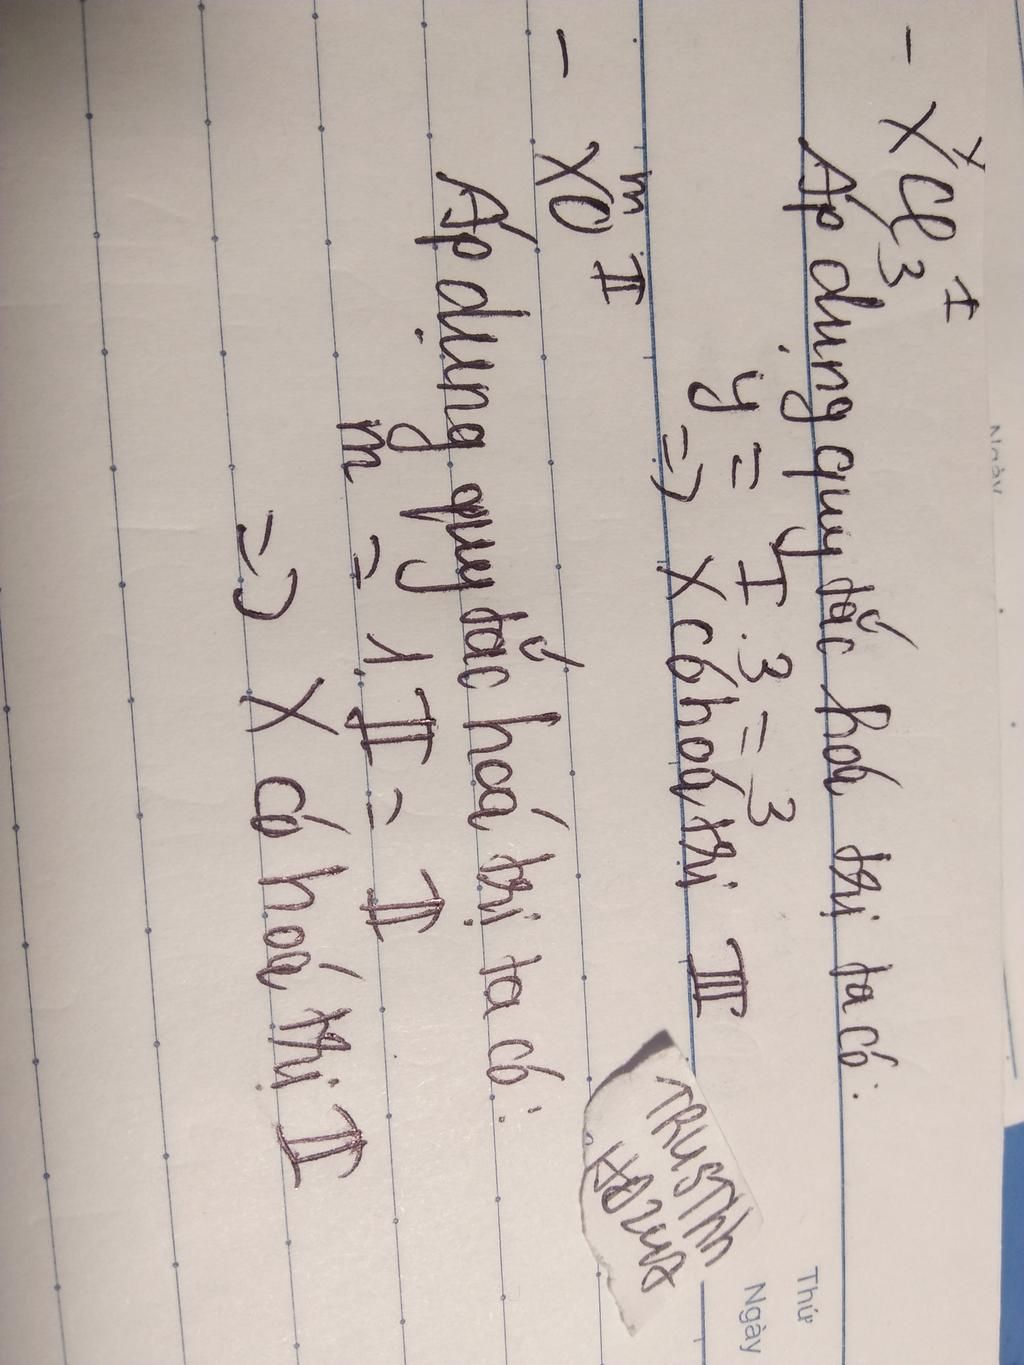 Thứ
Ngày
Ngày
- XCl₃ y I
Áp dụng quy tắc hoá trị ta có:
y = I . 3 = 3
=> X có hoá trị III
- XO m II
Áp dụng quy tắc hoá trị ta có:
m = 1 . II = II
=> X có hoá trị II